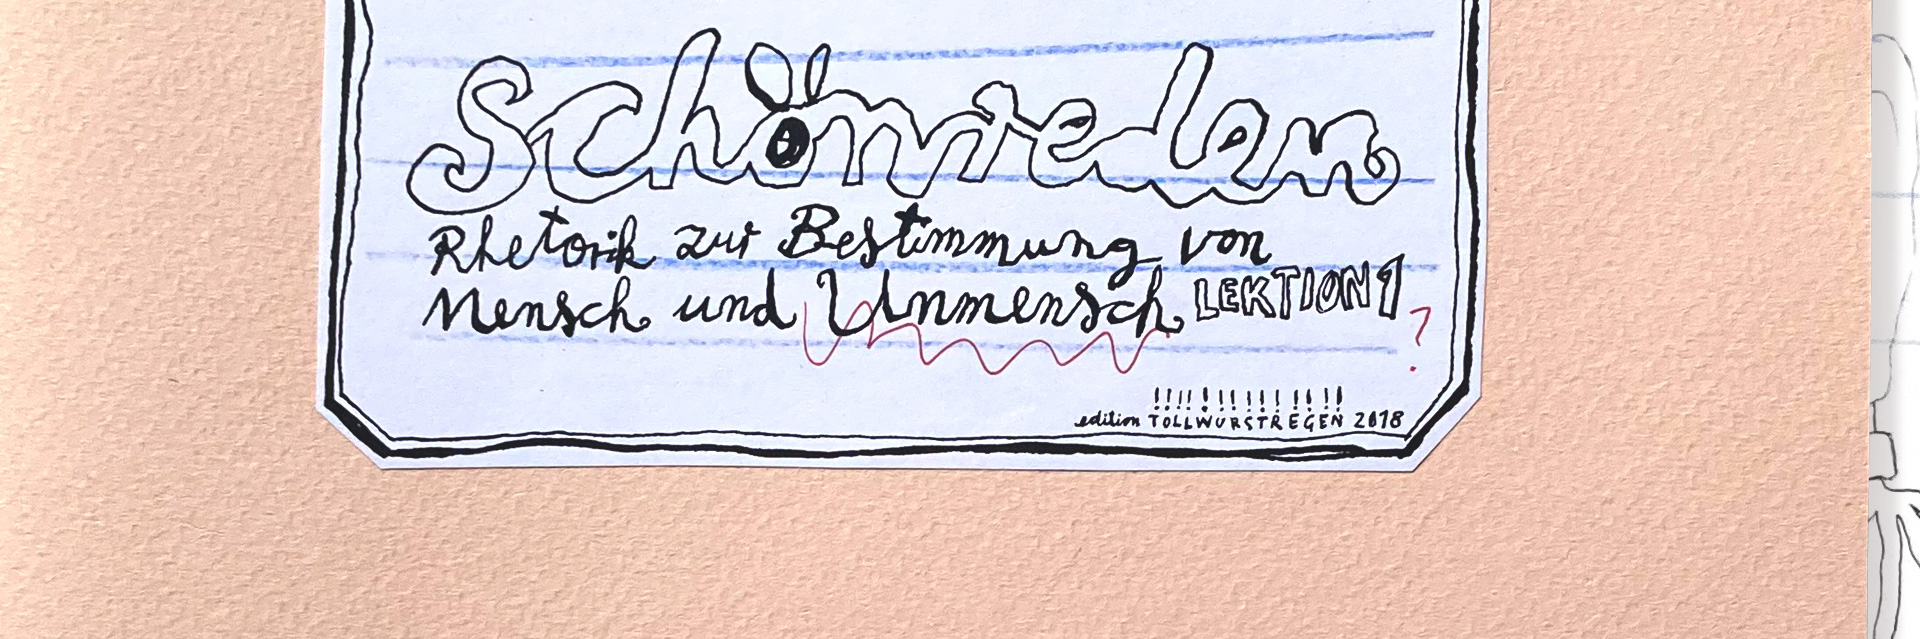 Schönreden
Rhetorik zur Bestimmung von
Mensch und Unmensch LEKTION 1
?
!!!!!!!!!!!!!!
edition TOLLWURSTREGEN 2018